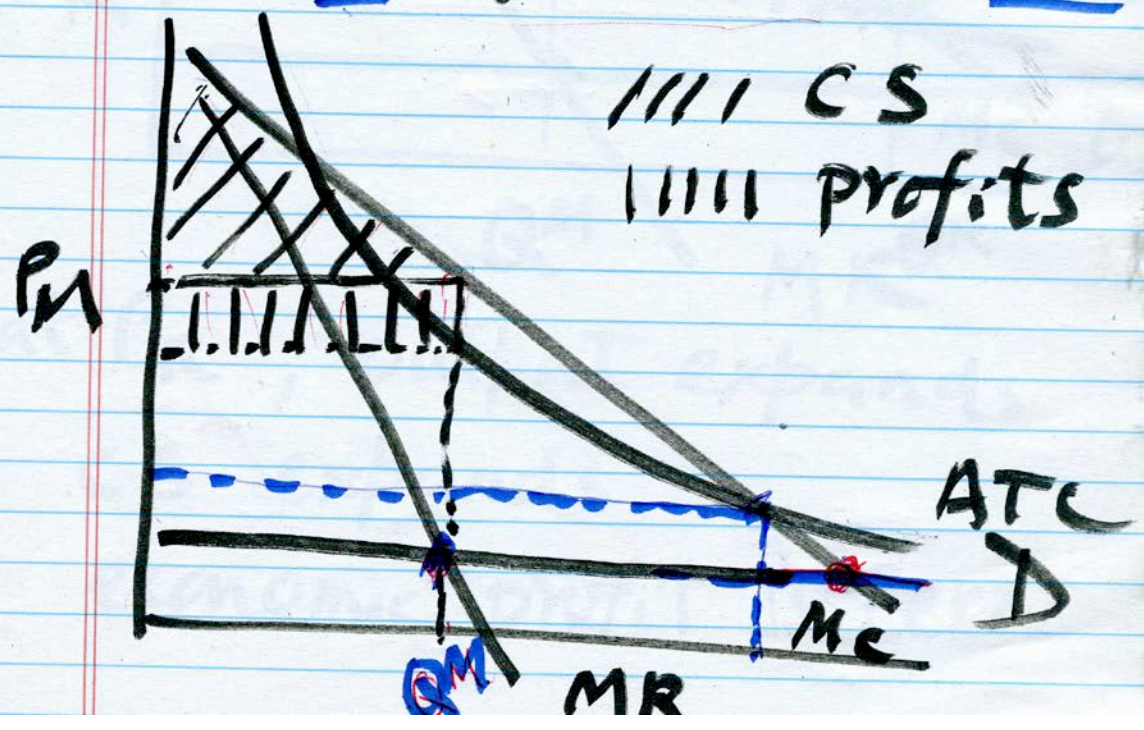 CS
profits
PM
ATC
D
MC
QM
MR